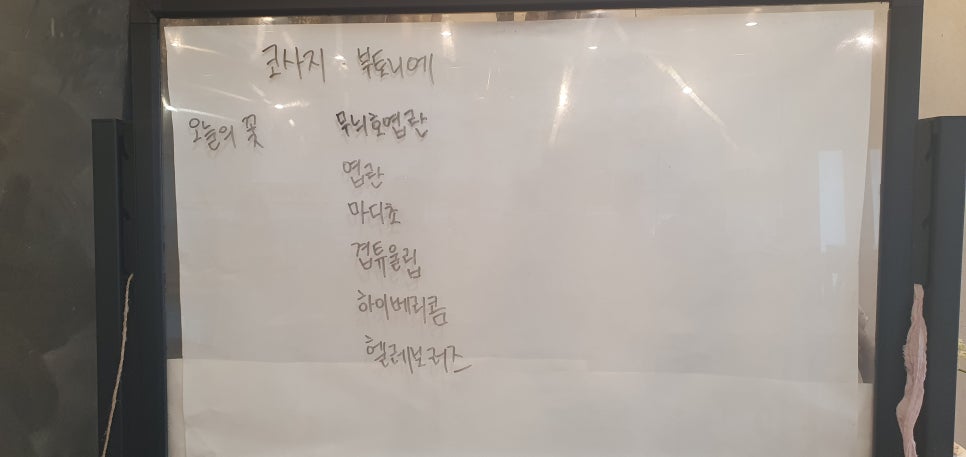 코사지 · 부토니에
오늘의 꽃 무늬호엽란
엽란
마디초
겹튜울립
하이베리콤
헬레보러즈